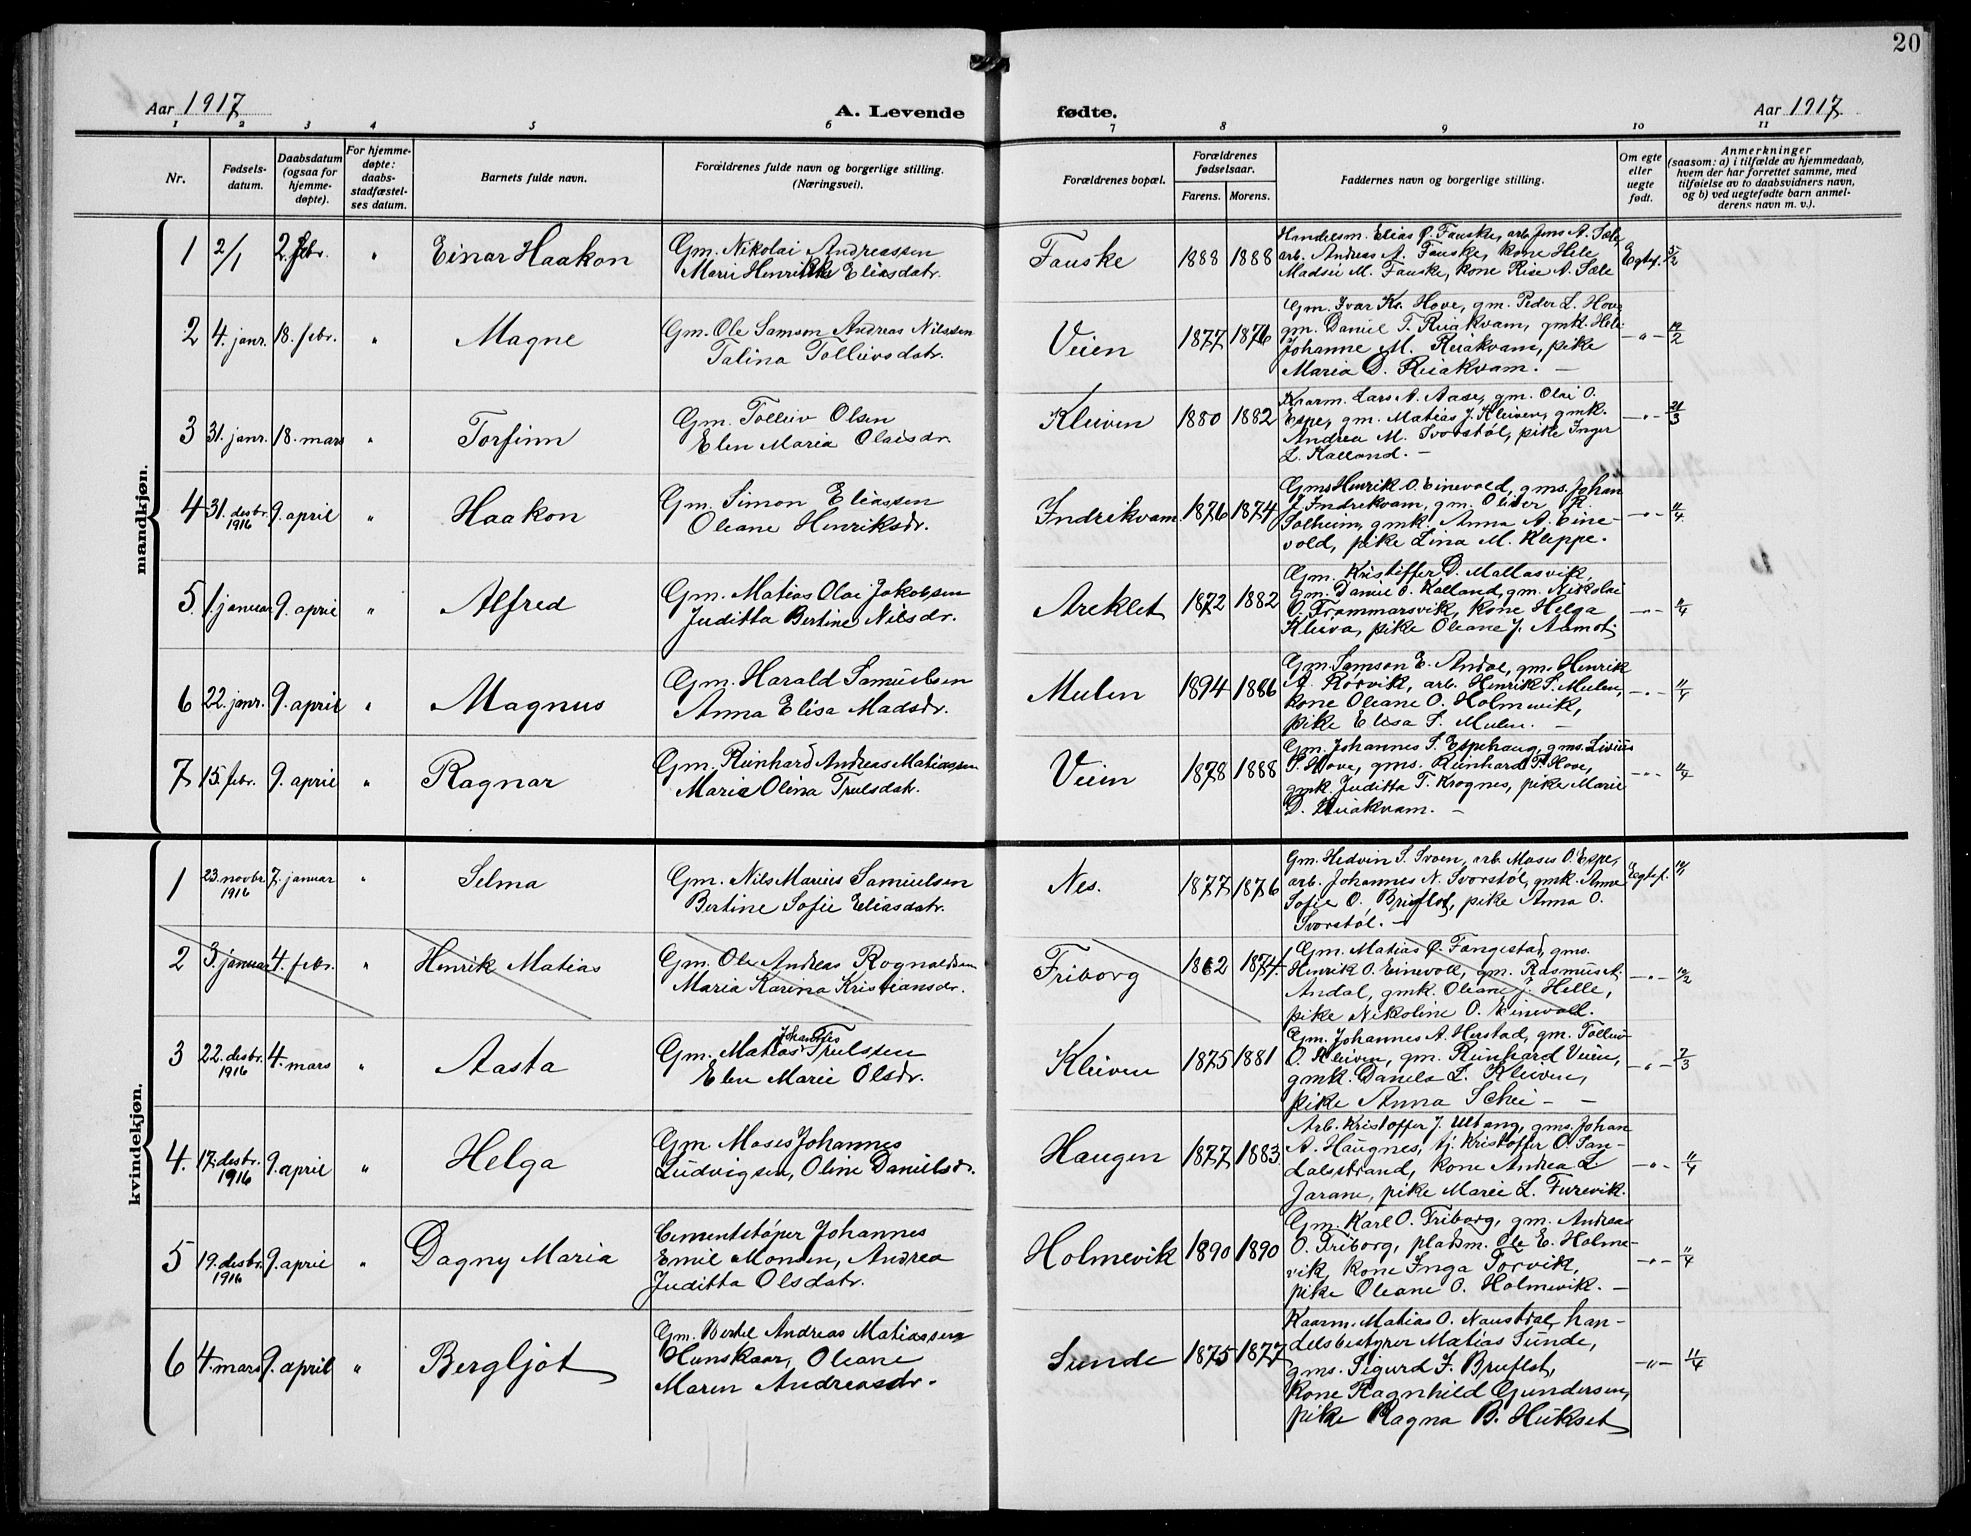 20
Aar 1917 A. Levende fødte. Aar 1917
1 2 3 4 5 6 7 8 9 10 11
Nr.
Fødsels-
datum.
Daabsdatum
(ogsaa for
hjemme-
døpte).
For hjemme-
døpte:
daabs-
stadfæstel-
ses datum.
Barnets fulde navn.
Forældrenes fulde navn og borgerlige stilling.
(Næringsvei).
Forældrenes bopæl.
Forældrenes
fødselsaar.
Farens. Morens.
Faddernes navn og borgerlige stilling.
Om egte
eller
uegte
født.
Anmerkninger
(saasom: a) i tilfælde av hjemmedaab,
hvem der har forrettet samme, med
tilføielse av to daabsvidners navn,
og b) ved uegtefødte barn anmel-
derens navn m. v.).
mandkjøn.
1 2/1 2. febr. " Einar Haakon
Gm. Nikolai Andreassen
Marie Henrikke Eliasdatr.
Fauske 1888 1888
Handelsm. Elias P. Fauske, arb. Jens A. Sæle
arb. Andreas A. Fauske, kone Hele
Madsei M. Fauske, kone Rise A. Sæle
Egtef. 5/2
2 4. janr. 18. febr. " Magne
Gm. Ole Samson Andreas Nilssen
Talina Tolleivsdatr.
Veien 1877 1876
Gm. Ivar Kr. Hove, gm. Peder L. Hove
gm. Daniel T. Reiakvam, gmk. Hele
Johanne M. Reiakvam, pike
Maria D. Reiakvam. —
— " — 19/2
3 31. janr. 18. mars " Torfinn
Gm. Tolleiv Olsen
Elen Maria Olaisdr.
Kleiven 1880 1882
Kaarm. Lars A. Aase, gm. Olai O.
Espe, gm. Matias J. Kleiven, gmk.
Andrea M. Svorstøl, pike Inger
L. Kalland. —
— " — 21/3
4 31. desbr. 1916 9. april " Haakon
Gm. Simon Eliassen
Oleane Henriksdr.
Indrekvam 1876 1874
Gms Henrik O. Einevold, gms. Johan
J. Indrekvam, gm. Olider R.
Solheim, gmk. Anna A. Eine-
vold, pike Lina M. Kleppe.
— " — 11/4
5. 1. januar 9. april " Alfred
Gm. Matias Olai Jakobsen
Juditta Bertine Nilsdr.
Areklet 1872 1882
Gm. Kristoffer D. Mallasvik,
gm. Daniel O. Kalland, gm. Nikolai
O. Frammarsvik, kone Helga
Kleiva, pike Oleane J. Aamot
— " — 11/4
6 22. janr. 9. april " Magnus
Gm. Harald Samuelsen
Anna Elisa Madsdr.
Mulen 1894 1886
Gm. Samson E. Andal, gm. Henrik
A. Rørvik, arb. Henrik S. Mulen,
kone Oleane O. Holmevik,
pike Elisa S. Mulen. —
— " — 11/4
7 15. febr. 9. april " Ragnar
Gm. Reinhard Andreas Matiassen
Marie Olina Trulsdatr.
Veien 1878 1888
Gm. Johannes S. Espehaug, gms. Livius
P. Hove, gms. Reinhard P. Hove,
gmk. Juditta T. Krognes, pike Marie
D. Reiakvam. —
— " — 11/4
kvindekjøn.
1 23. novbr. 1916 7. januar " Selma
Gm. Nils Marius Samuelsen
Bertine Sofie Eliasdatr.
Nes. 1877 1876
Gm. Hedvin S. Svoen, arb. Moses O. Espe,
arb. Johannes N. Svorstøl, gmk. Anne
Sofie O. Bruflot, pike Anna O.
Svorstøl. —
Egtef.
2 3. januar 4. febr. " Henrik Matias
Gm. Ole Andreas Rognaldsen
Maria Karina Kristiansdr.
Friborg 1862 1874
Gm. Matias O. Fangestad, gms.
Henrik O. Einevoll, gm. Rasmus A.
Andal, gmk. Oleane J. Helle,
pike Nikoline O. Einevoll.
— " —
3 22. desbr. 1916 4. mars " Aasta
Johannes
Gm. Matias Trulssen
Elen Marie Olsdr.
Kleiven 1875 1881
Gm. Johannes A. Herstad, gm. Tolleiv
O. Kleiven, gm. Reinhard Veien,
gmk. Daniela L. Kleiven,
pike Anna Schei — —
— " — 7/3
4. 17. desbr. 1916 9. april " Helga
Gm. Moses Johannes
Ludvigsen, Oline Danielsdr.
Haugen 1877 1883
Arb. Kristoffer J. Ultang, gms. Johan
A. Haugnes, tj. Kristoffer O. San-
dalsstrand, kone Andrea L.
Jarane, pike Marie L. Furevik.
— " — 11/4
5 19. desbr. 1916 9. april " Dagny Maria
Cementstøper Johannes
Emil Monsen, Andrea
Juditta Olsdatr.
Holmevik 1890 1890
Gm. Karl O. Friborg, gm. Andreas
O. Friborg, pladsm. Ole E. Holme-
vik, kone Inga Torvik,
pike Oleane O. Holmevik. —
— " — 11/4
6 4. mars 9. april " Bergljot
Gm. Bertel Andreas Matiassen
Hunskaar, Oleane
Maren Andreasdr.
Sunde 1875 1877
Kaarm. Matias O. Naustdal, han-
delsbestyrer Matias Sunde,
gms. Sigurd J. Bruflot,
kone Ragnhild Gundersen,
pike Ragna B. Hukset
— " — 11/4